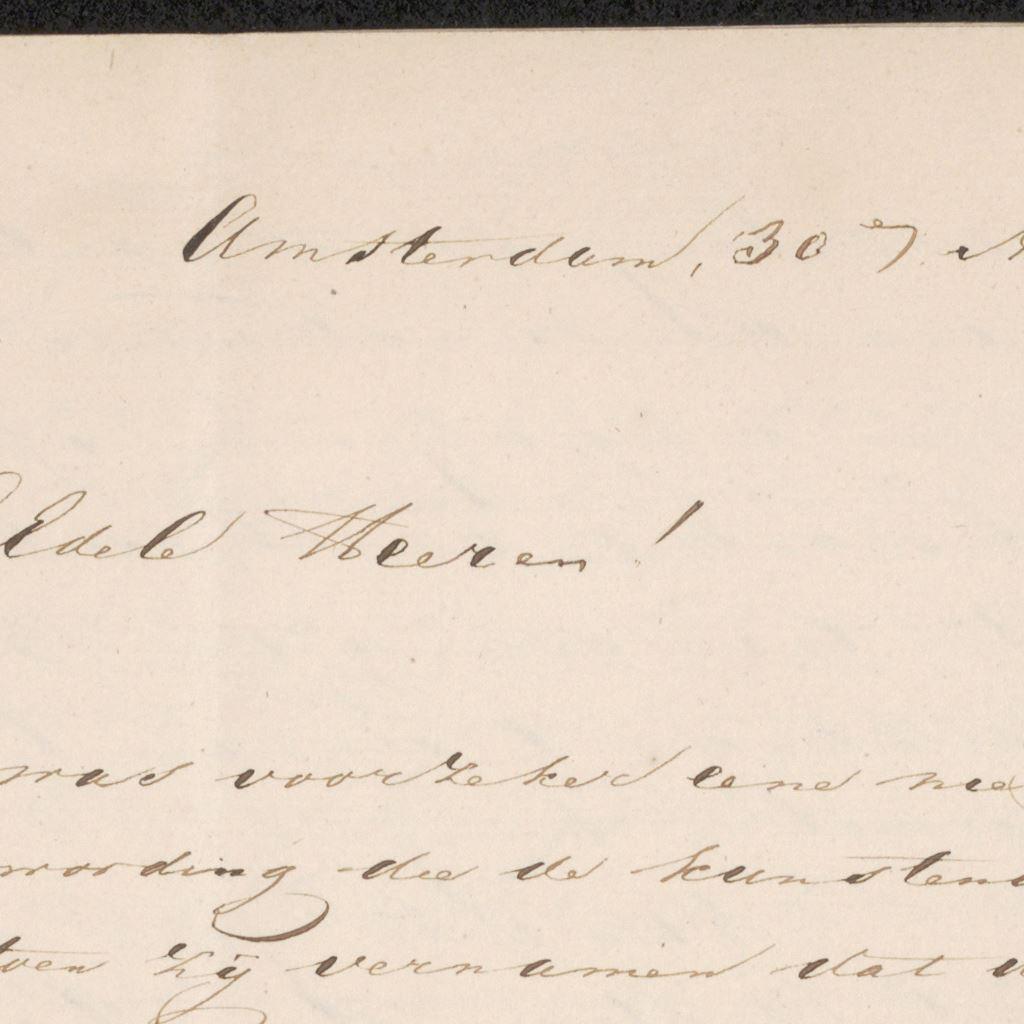 Amsterdam, 30
Edele Heeren!
was voorzeker eene
die de
toen zij vernamen dat